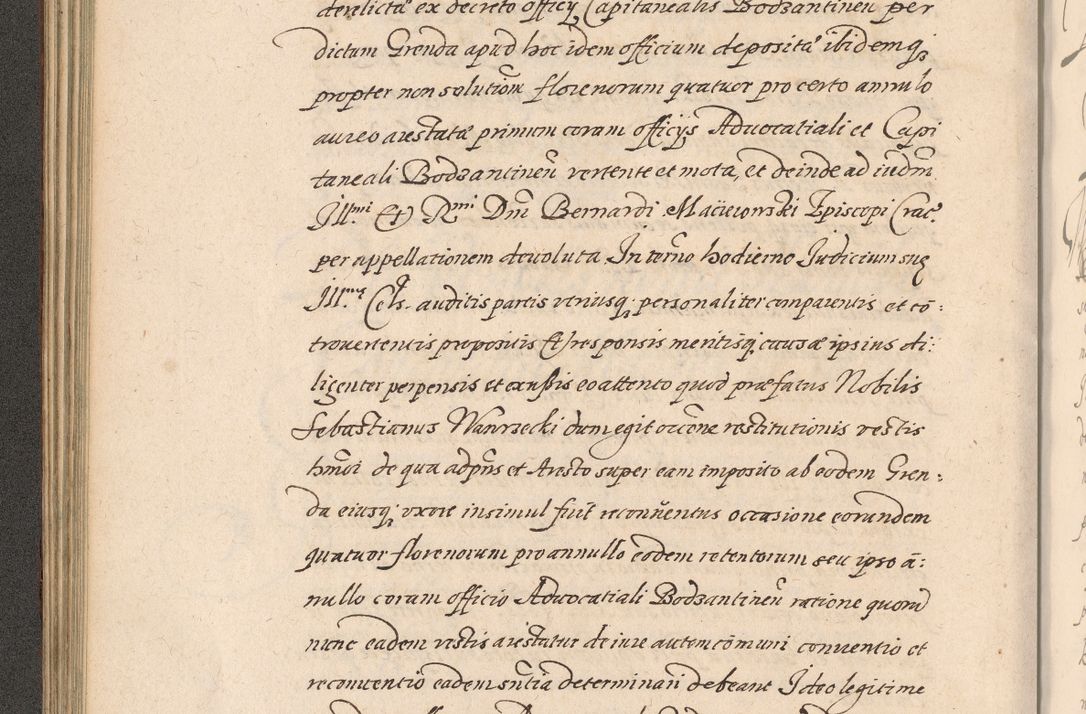 derelicta ex decreto officÿ Capitanealis Bodzantineñ per
dictum Grenda apud hoc idem officium deposita ibidemq;
propter non solutiom̃ florenorum quatuor pro certo annulo
aureo arestatæ primum coram officÿs Advocatiali et Capi
taneali Bodzantineñ vertente et mota, et deinde ad iudm̃
Jll.mi & Rmi Dm̃ Bernardi Macieiowski Episcopi Crac.
per appellationem devoluta. In terño hodierno Judicium suæ
Jll.mæ Cels. auditis partis utriusq; personaliter comparentis et cõ:
trovertentis propositis & responsis meritisq; causæ ipsius di:
ligenter perpensis et exußis eo attento quod præfatus Nobilis
Sebastianus Wawrzecki dum egit occõne restitutionis vestis
hm̃oi de qua adpñs et Aresto super eam imposito ab eodem Gren:
da eiusq; uxore insimul fuit reconũentus occasione eorundem
quatuor florenorum pro annullo eodem retentorum seu ipso ã:
nullo coram officio Advocatiali Bodzantineñ ratione quorũ
nunc eadem vestis arestatur de iure autem cõmuni conventio et
reconventiõ eadem sñtia determinari debeant Ideo legitime